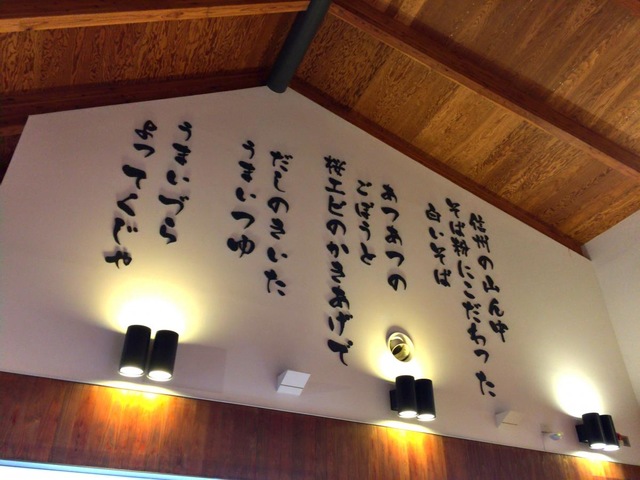 信州の山ん中
そば粉にこだわった
白いそば
あつあつの
とばうと
桜エビのかきあげで
だしのきいた
うまいつゆ
うまいづら
よってくじゃ